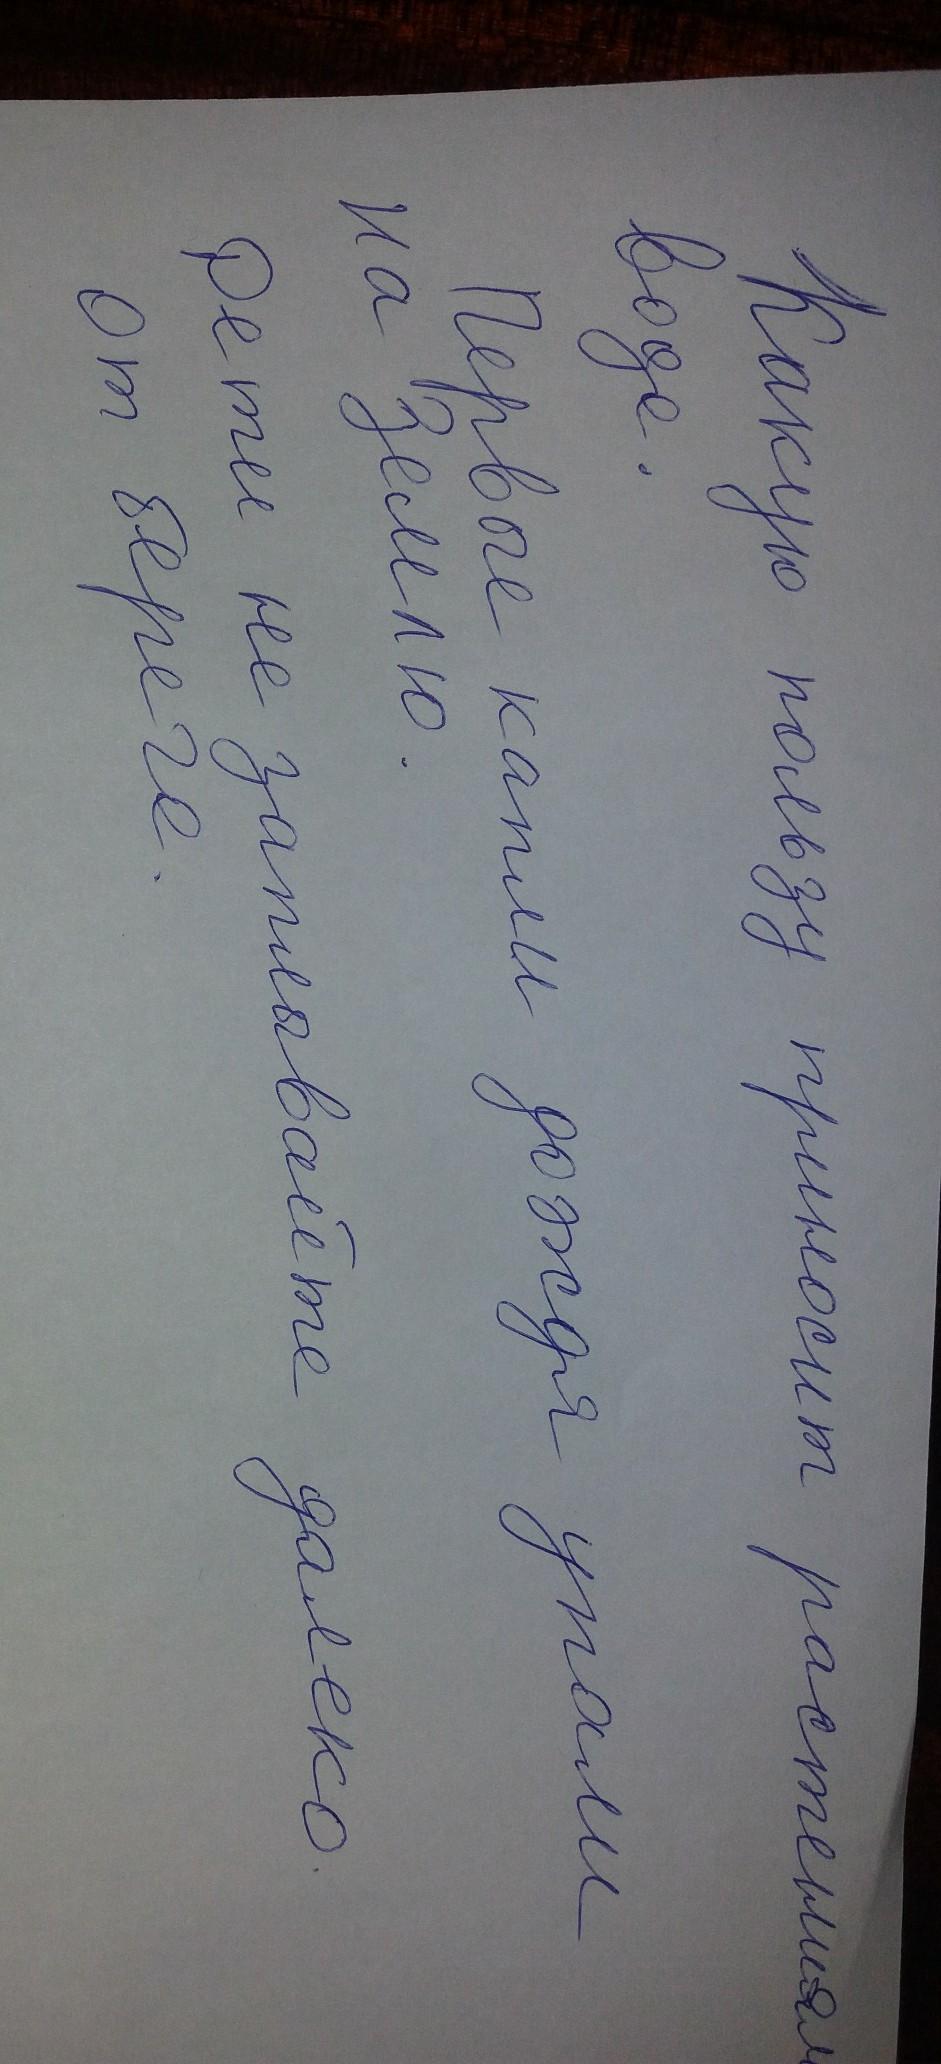 Какую пользу приносит растениям
воде.
Первые капли дождя упали
на Землю.
Дети не заплывайте далеко.
от береге.